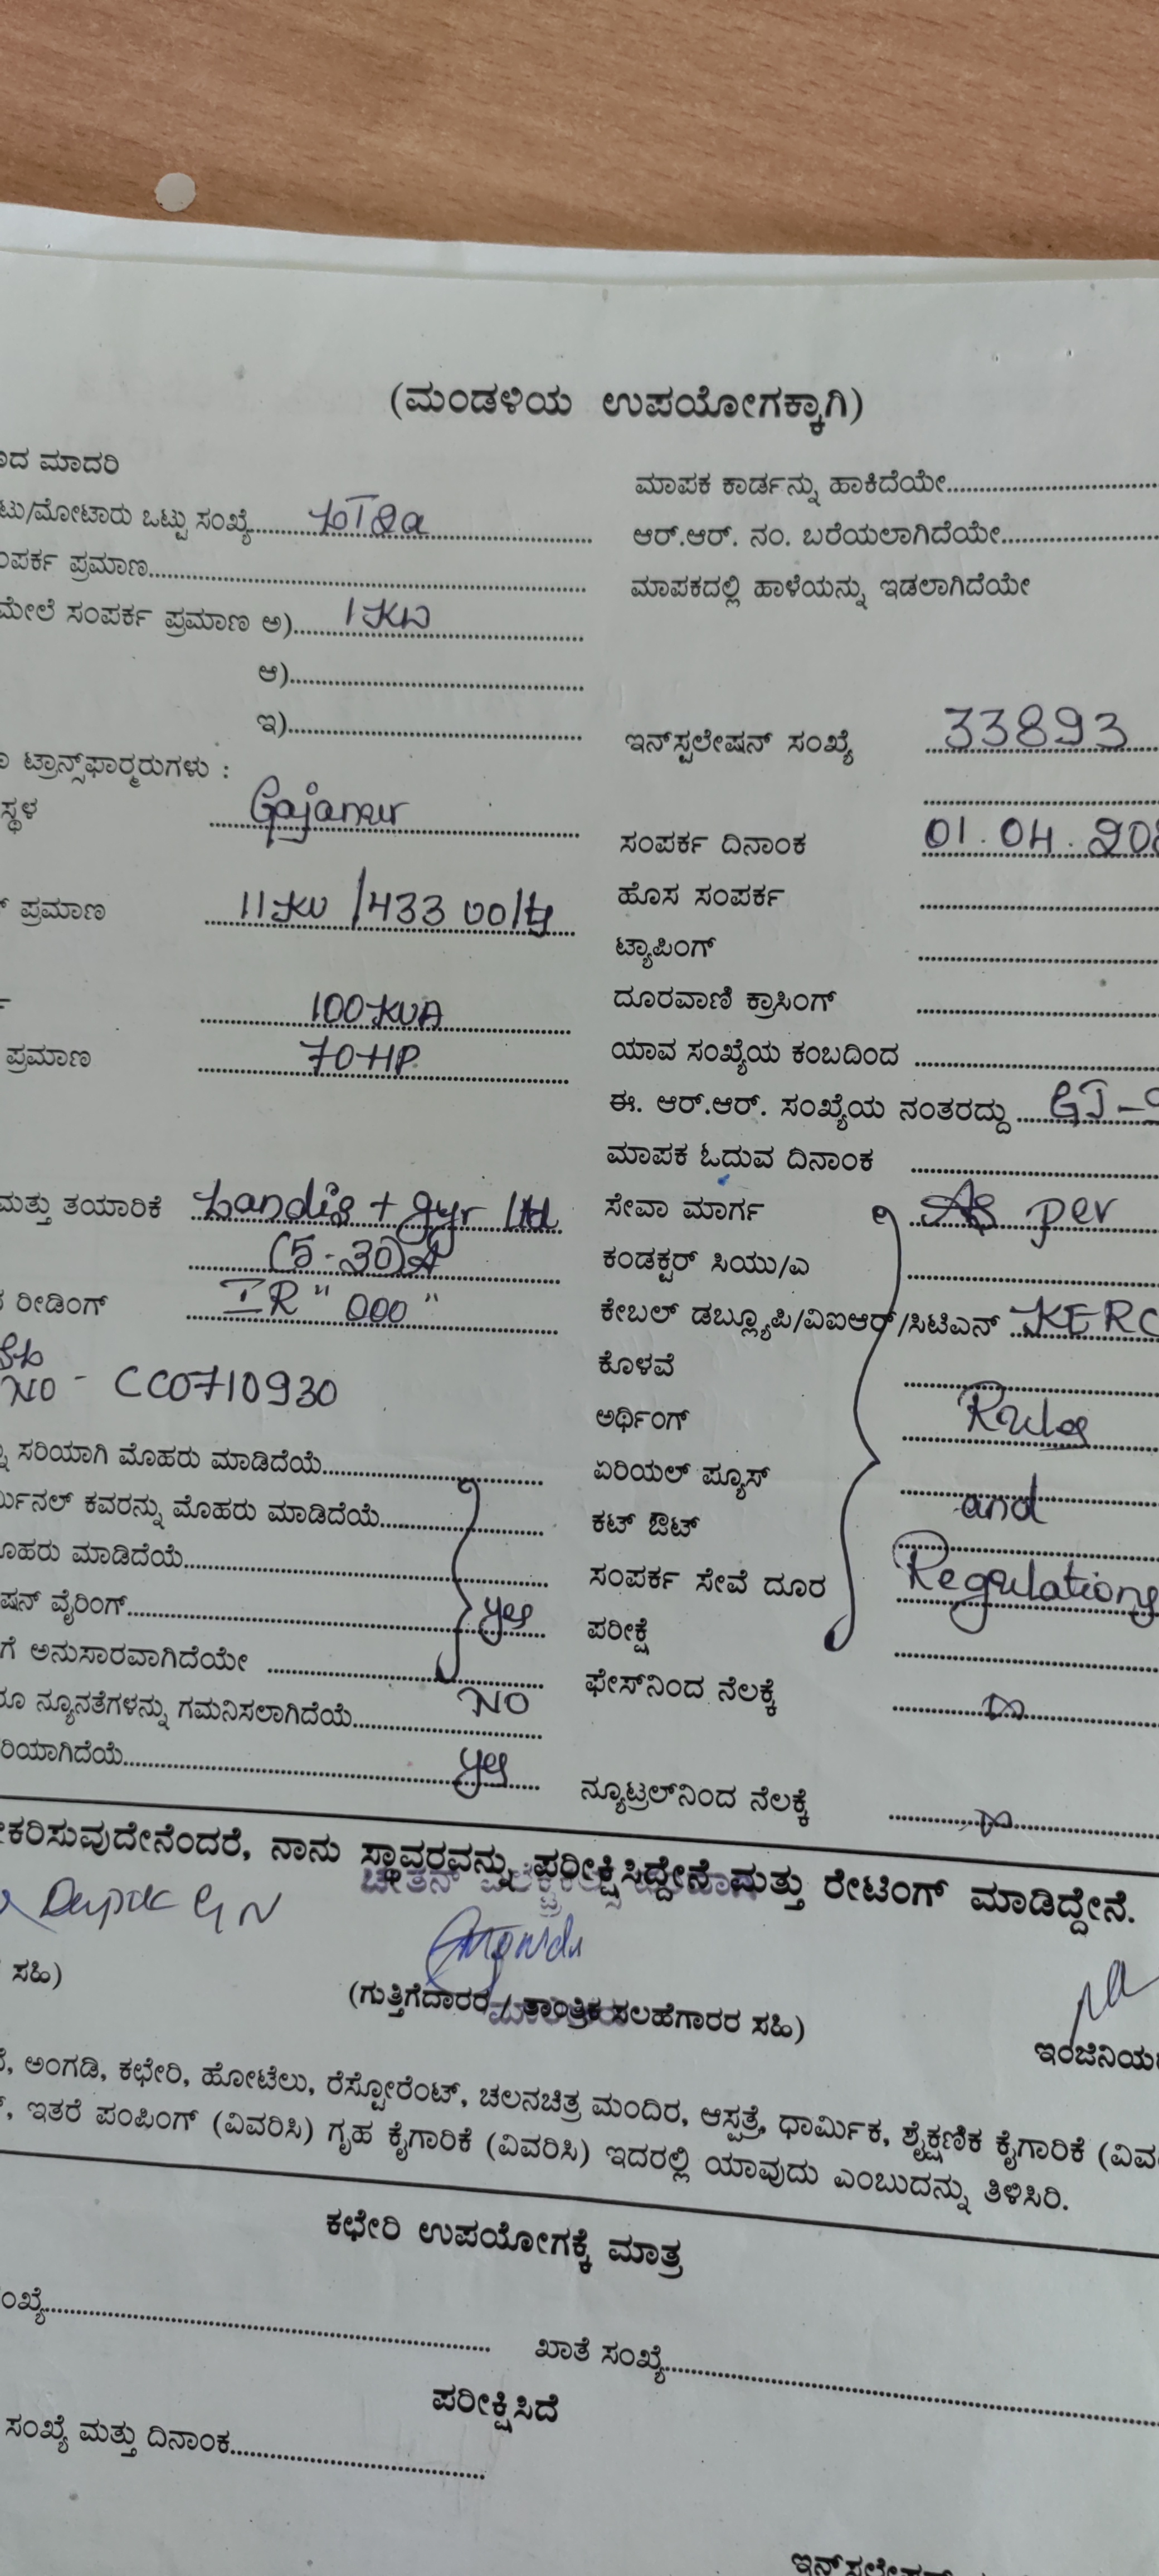 (ಮಂಡಳಿಯ ಉಪಯೋಗಕ್ಕಾಗಿ)
ಾದ ಮಾದರಿ
ಟು/ಮೋಟಾರು ಒಟ್ಟು ಸಂಖ್ಯೆ
ಂಪರ್ಕ ಪ್ರಮಾಣ
ಮೇಲೆ ಸಂಪರ್ಕ ಪ್ರಮಾಣ ಅ) 1KW
ಆ)
ಇ)
ಟ್ರಾನ್ಸ್‌ಫಾರ್‍ಮರುಗಳು :
ಸ್ಥಳ Gajanur
ಪ್ರಮಾಣ 11KV/433 volts
100KVA
ಪ್ರಮಾಣ 70HP
ಮತ್ತು ತಯಾರಿಕೆ Landis + gyr Ltd
(5-30)A
ರೀಡಿಂಗ್ IR "000"
NO - CC0710930
ಸರಿಯಾಗಿ ಮೊಹರು ಮಾಡಿದೆಯೆ
ರ್ಮಿನಲ್ ಕವರನ್ನು ಮೊಹರು ಮಾಡಿದೆಯೆ
ೊಹರು ಮಾಡಿದೆಯೆ
ಷನ್ ವೈರಿಂಗ್ yes
ಗೆ ಅನುಸಾರವಾಗಿದೆಯೇ
ನ್ಯೂನತೆಗಳನ್ನು ಗಮನಿಸಲಾಗಿದೆಯೆ NO
ರಿಯಾಗಿದೆಯೆ yes
ಮಾಪಕ ಕಾರ್ಡನ್ನು ಹಾಕಿದೆಯೇ
ಆರ್.ಆರ್. ನಂ. ಬರೆಯಲಾಗಿದೆಯೇ
ಮಾಪಕದಲ್ಲಿ ಹಾಳೆಯನ್ನು ಇಡಲಾಗಿದೆಯೇ
ಇನ್‌ಸ್ಪಲೇಷನ್ ಸಂಖ್ಯೆ 33893
ಸಂಪರ್ಕ ದಿನಾಂಕ 01.04.20
ಹೊಸ ಸಂಪರ್ಕ
ಟ್ಯಾಪಿಂಗ್
ದೂರವಾಣಿ ಕ್ರಾಸಿಂಗ್
ಯಾವ ಸಂಖ್ಯೆಯ ಕಂಬದಿಂದ
ಈ. ಆರ್.ಆರ್. ಸಂಖ್ಯೆಯ ನಂತರದ್ದು GJ-
ಮಾಪಕ ಓದುವ ದಿನಾಂಕ
ಸೇವಾ ಮಾರ್ಗ As per
ಕಂಡಕ್ಟರ್ ಸಿಯು/ಎ
ಕೇಬಲ್ ಡಬ್ಲ್ಯೂಪಿ/ವಿಐಆರ್/ಸಿಟಿಎನ್ KERC
ಕೊಳವೆ
ಅರ್ಥಿಂಗ್ Rules
ಏರಿಯಲ್ ಪ್ಯೂಸ್
ಕಟ್ ಔಟ್ and
ಸಂಪರ್ಕ ಸೇವೆ ದೂರ Regulations
ಪರೀಕ್ಷೆ
ಫೇಸ್‌ನಿಂದ ನೆಲಕ್ಕೆ ∞
ನ್ಯೂಟ್ರಲ್‌ನಿಂದ ನೆಲಕ್ಕೆ ∞
ಕರಿಸುವುದೇನೆಂದರೆ, ನಾನು ಸ್ಥಾವರವನ್ನು ಪರೀಕ್ಷಿಸಿದ್ದೇನೆ ಮತ್ತು ರೇಟಿಂಗ್ ಮಾಡಿದ್ದೇನೆ.
Deepak G N
ಸಹಿ) (ಗುತ್ತಿಗೆದಾರರ / ತಾಂತ್ರಿಕ ಸಲಹೆಗಾರರ ಸಹಿ) ಇಂಜಿನಿಯ
ಅಂಗಡಿ, ಕಛೇರಿ, ಹೋಟೆಲು, ರೆಸ್ಪೋರೆಂಟ್, ಚಲನಚಿತ್ರ ಮಂದಿರ, ಆಸ್ಪತ್ರೆ, ಧಾರ್ಮಿಕ, ಶೈಕ್ಷಣಿಕ ಕೈಗಾರಿಕೆ (ವಿವ
ಇತರೆ ಪಂಪಿಂಗ್ (ವಿವರಿಸಿ) ಗೃಹ ಕೈಗಾರಿಕೆ (ವಿವರಿಸಿ) ಇದರಲ್ಲಿ ಯಾವುದು ಎಂಬುದನ್ನು ತಿಳಿಸಿರಿ.
ಕಛೇರಿ ಉಪಯೋಗಕ್ಕೆ ಮಾತ್ರ
ಂಖ್ಯೆ ಖಾತೆ ಸಂಖ್ಯೆ
ಪರೀಕ್ಷಿಸಿದೆ
ಸಂಖ್ಯೆ ಮತ್ತು ದಿನಾಂಕ